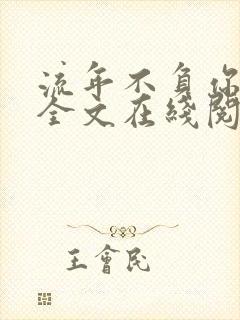 流年不负你
全文在綫閱
王會民